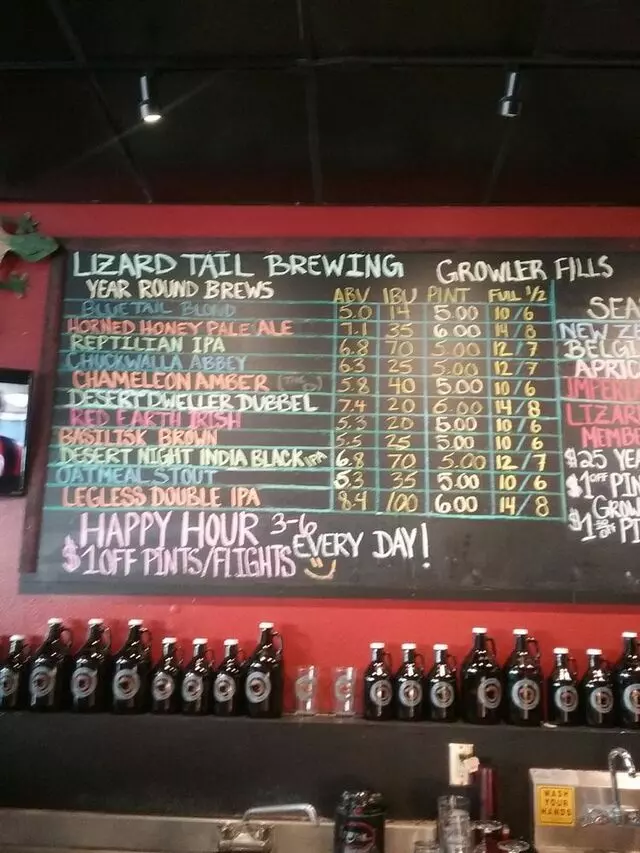 LIZARD TAIL BREWING GROWLER FILLS
YEAR ROUND BREWS ABV IBU PINT FULL 1/2
BLUE TAIL BLOND 5.0 14 5.00 10/6
HORNED HONEY PALE ALE 7.1 35 6.00 14/8
REPTILIAN IPA 6.8 70 5.00 12/7
CHUCKWALLA ABBEY 6.3 25 5.00 12/7
CHAMELEON AMBER 5.8 40 5.00 10/6
DESERT DWELLER DUBBEL 7.4 20 6.00 14/8
RED EARTH IRISH 5.3 20 5.00 10/6
BASILISK BROWN 5.5 25 5.00 10/6
DESERT NIGHT INDIA BLACK IPA 6.8 70 5.00 12/7
OATMEAL STOUT 5.3 35 5.00 10/6
LEGLESS DOUBLE IPA 8.4 100 6.00 14/8
HAPPY HOUR 3-6
EVERY DAY!
$1 OFF PINTS/FLIGHTS
SEA
NEW Z
BELGI
APRIC
IMPERI
LIZAR
MEMBE
$25 YEA
$1 OFF PIN
GROW
$1 OFF PI
WASH
YOUR
HANDS